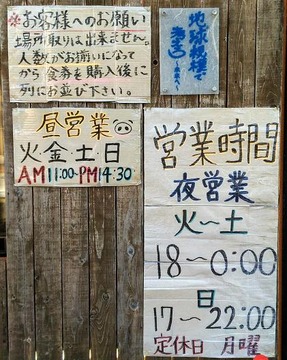 ※お客様へのお願い
場所取りは出来ません。
人数がお揃いになって
から食券を購入後に
列にお並び下さい。
地球規模で
昼営業
火・金・土・日
AM11:00~PM14:30
営業時間
夜営業
火~土
18~0:00
日
17~22:00
定休日 月曜